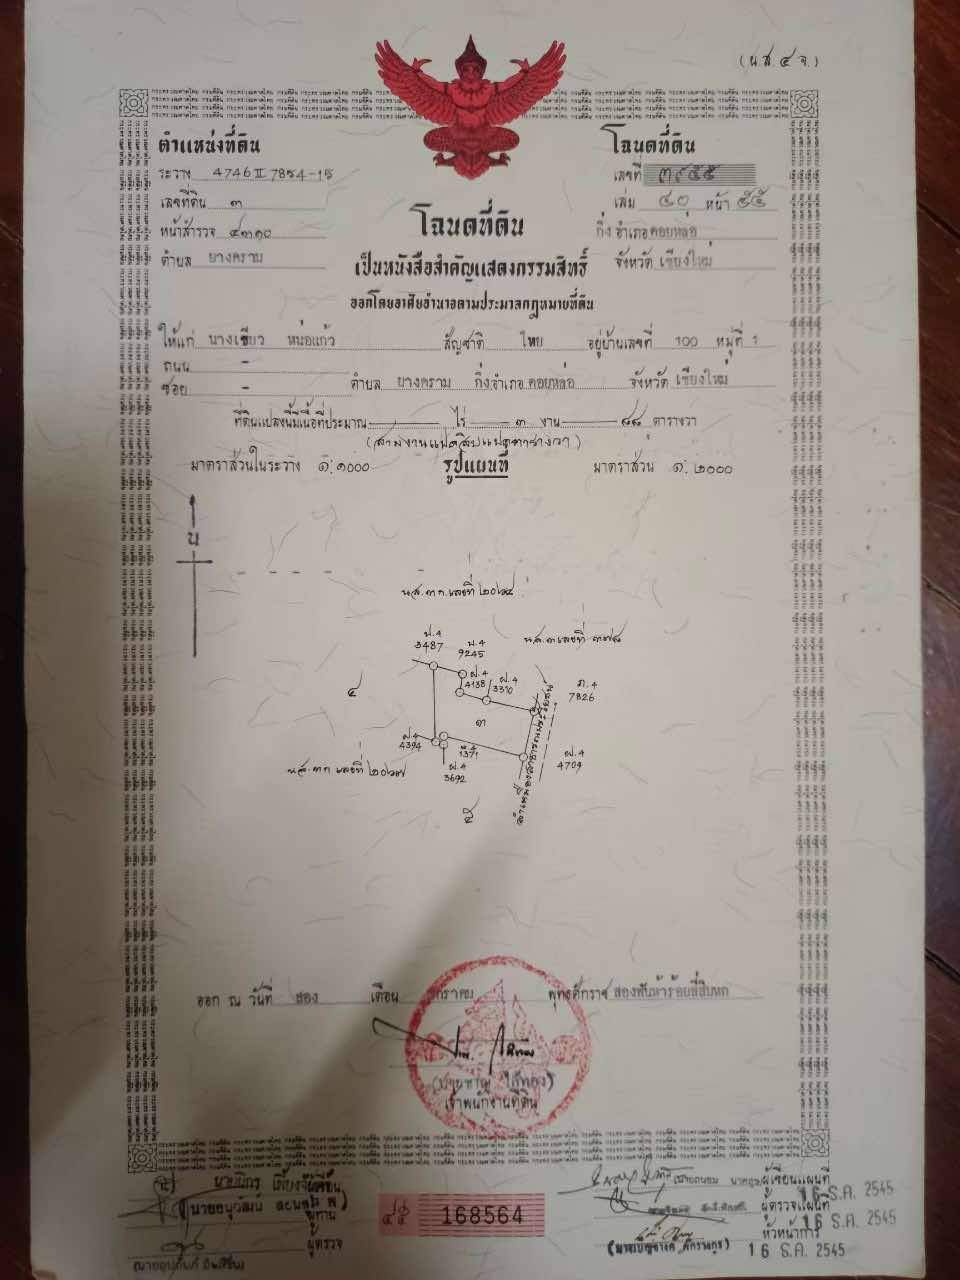 (น.ส. ๔ จ.)
ตำแหน่งที่ดิน
ระวาง 4746 II 7854-15
เลขที่ดิน ๓
หน้าสำรวจ ๔๓๑๐
ตำบล ยางคราม
โฉนดที่ดิน
เลขที่ ๓๙๕๕
เล่ม ๔๐ หน้า ๕๕
กิ่งอำเภอ ดอยหล่อ
จังหวัด เชียงใหม่
โฉนดที่ดิน
เป็นหนังสือสำคัญแสดงกรรมสิทธิ์
ออกโดยอาศัยอำนาจตามประมวลกฎหมายที่ดิน
ให้แก่ นางเขียว หน่อแก้ว สัญชาติ ไทย อยู่บ้านเลขที่ 100 หมู่ที่ 1
ถนน -
ซอย - ตำบล ยางคราม กิ่งอำเภอ ดอยหล่อ จังหวัด เชียงใหม่
ที่ดินแปลงนี้มีเนื้อที่ประมาณ ไร่ ๓ งาน ๘๘ ตารางวา
(สามงานแปดสิบแปดตารางวา)
มาตราส่วนในระวาง ๑:๑๐๐๐ รูปแผนที่ มาตราส่วน ๑:๒๐๐๐
น
น.ส. ๓ ก. เลขที่
น.ส. ๓ เลขที่
น.4
3487
น.4
9245
ฝ.4
4138
ฝ.4
3310
ภ.4
7826
๔
๓
ฝ.4
4394
1371
ฝ.4
3692
ฝ.4
4704
น.ส. ๓ ก เลขที่
ลำเหมืองสาธารณประโยชน์
๕
ออก ณ วันที่ สอง เดือน มกราคม พุทธศักราช สองพันห้าร้อยสี่สิบหก
เจ้าพนักงานที่ดิน
ผู้เขียนแผนที่
16 ธ.ค. 2545
ผู้ตรวจแผนที่
16 ธ.ค. 2545
หัวหน้าการ
16 ธ.ค. 2545
ผู้ทาน
ผู้ตรวจ
168564